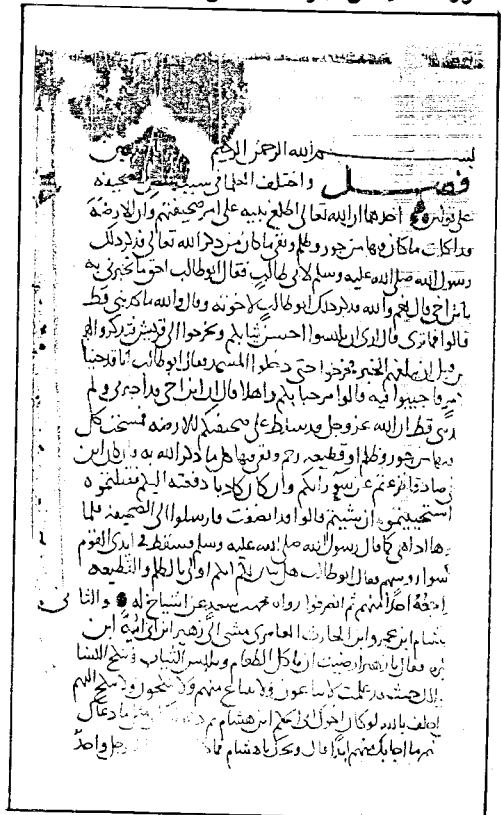 بسم الله الرحمن الرحيم
فصل واختلف العلما في سبب نقض الصحيفة
على قولين احدهما ان الله تعالى اطلع نبيه على امر صحيفتهم وان الارضة
قد اكلت ما كان فيها من جور وظلم وبقي ما كان من ذكر الله تعالى فذكر ذلك
رسول الله صلى الله عليه وسلم لابي طالب فقال ابو طالب احق ما تخبرني به
يا ابن اخي قال نعم والله فذكر ذلك ابو طالب لاخوته وقال والله ما كذبني قط
قالوا فما ترى قال ارى ان تلبسوا احسن ثيابكم وتخرجوا الى قريش فتذكروا لهم
من قبل ان يبلغهم الخبر فخرجوا حتى دخلوا المسجد فقال ابو طالب انا قد جينا
في امر فاجيبوا فيه قالوا مرحبا بكم واهلا قال ان ابن اخي قد اخبرني ولم
يكذبني قط ان الله عز وجل قد سلط على صحيفتكم الارضة فمسخت كل
ما فيها من جور وظلم او قطيعة رحم وبقي فيها كل ما ذكر الله به فان كان ابن
اخي صادقا نزعتم عن سو رايكم وان كان كاذبا دفعته اليكم فقتلتموه
او استحييتموه ان شيتم قالوا قد انصفت فارسلوا الى الصحيفة فلما
هي كما قال رسول الله صلى الله عليه وسلم فسقط في ايدي القوم
روسهم فقال ابو طالب هل تبين لكم انكم اولى بالظلم والقطيعة
احد منهم ثم انصرفوا رواه محمد بن سعد عن اشياخ له والثاني
هشام ابن عمرو ابن الحارث العامري مشى الى زهير ابن ابي امية ابن
فقال يا زهير ارضيت ان تاكل الطعام وتلبس الثياب وتنكح النسا
حيث قد علمت لا يباعون ولا يبتاع منهم ولا ينكحون ولا ينكح اليهم
احلف بالله لو كان اخوال ابي الحكم ابن هشام ثم
ما اجابك اليهم ابدا قال ويحك يا هشام رجل واحد